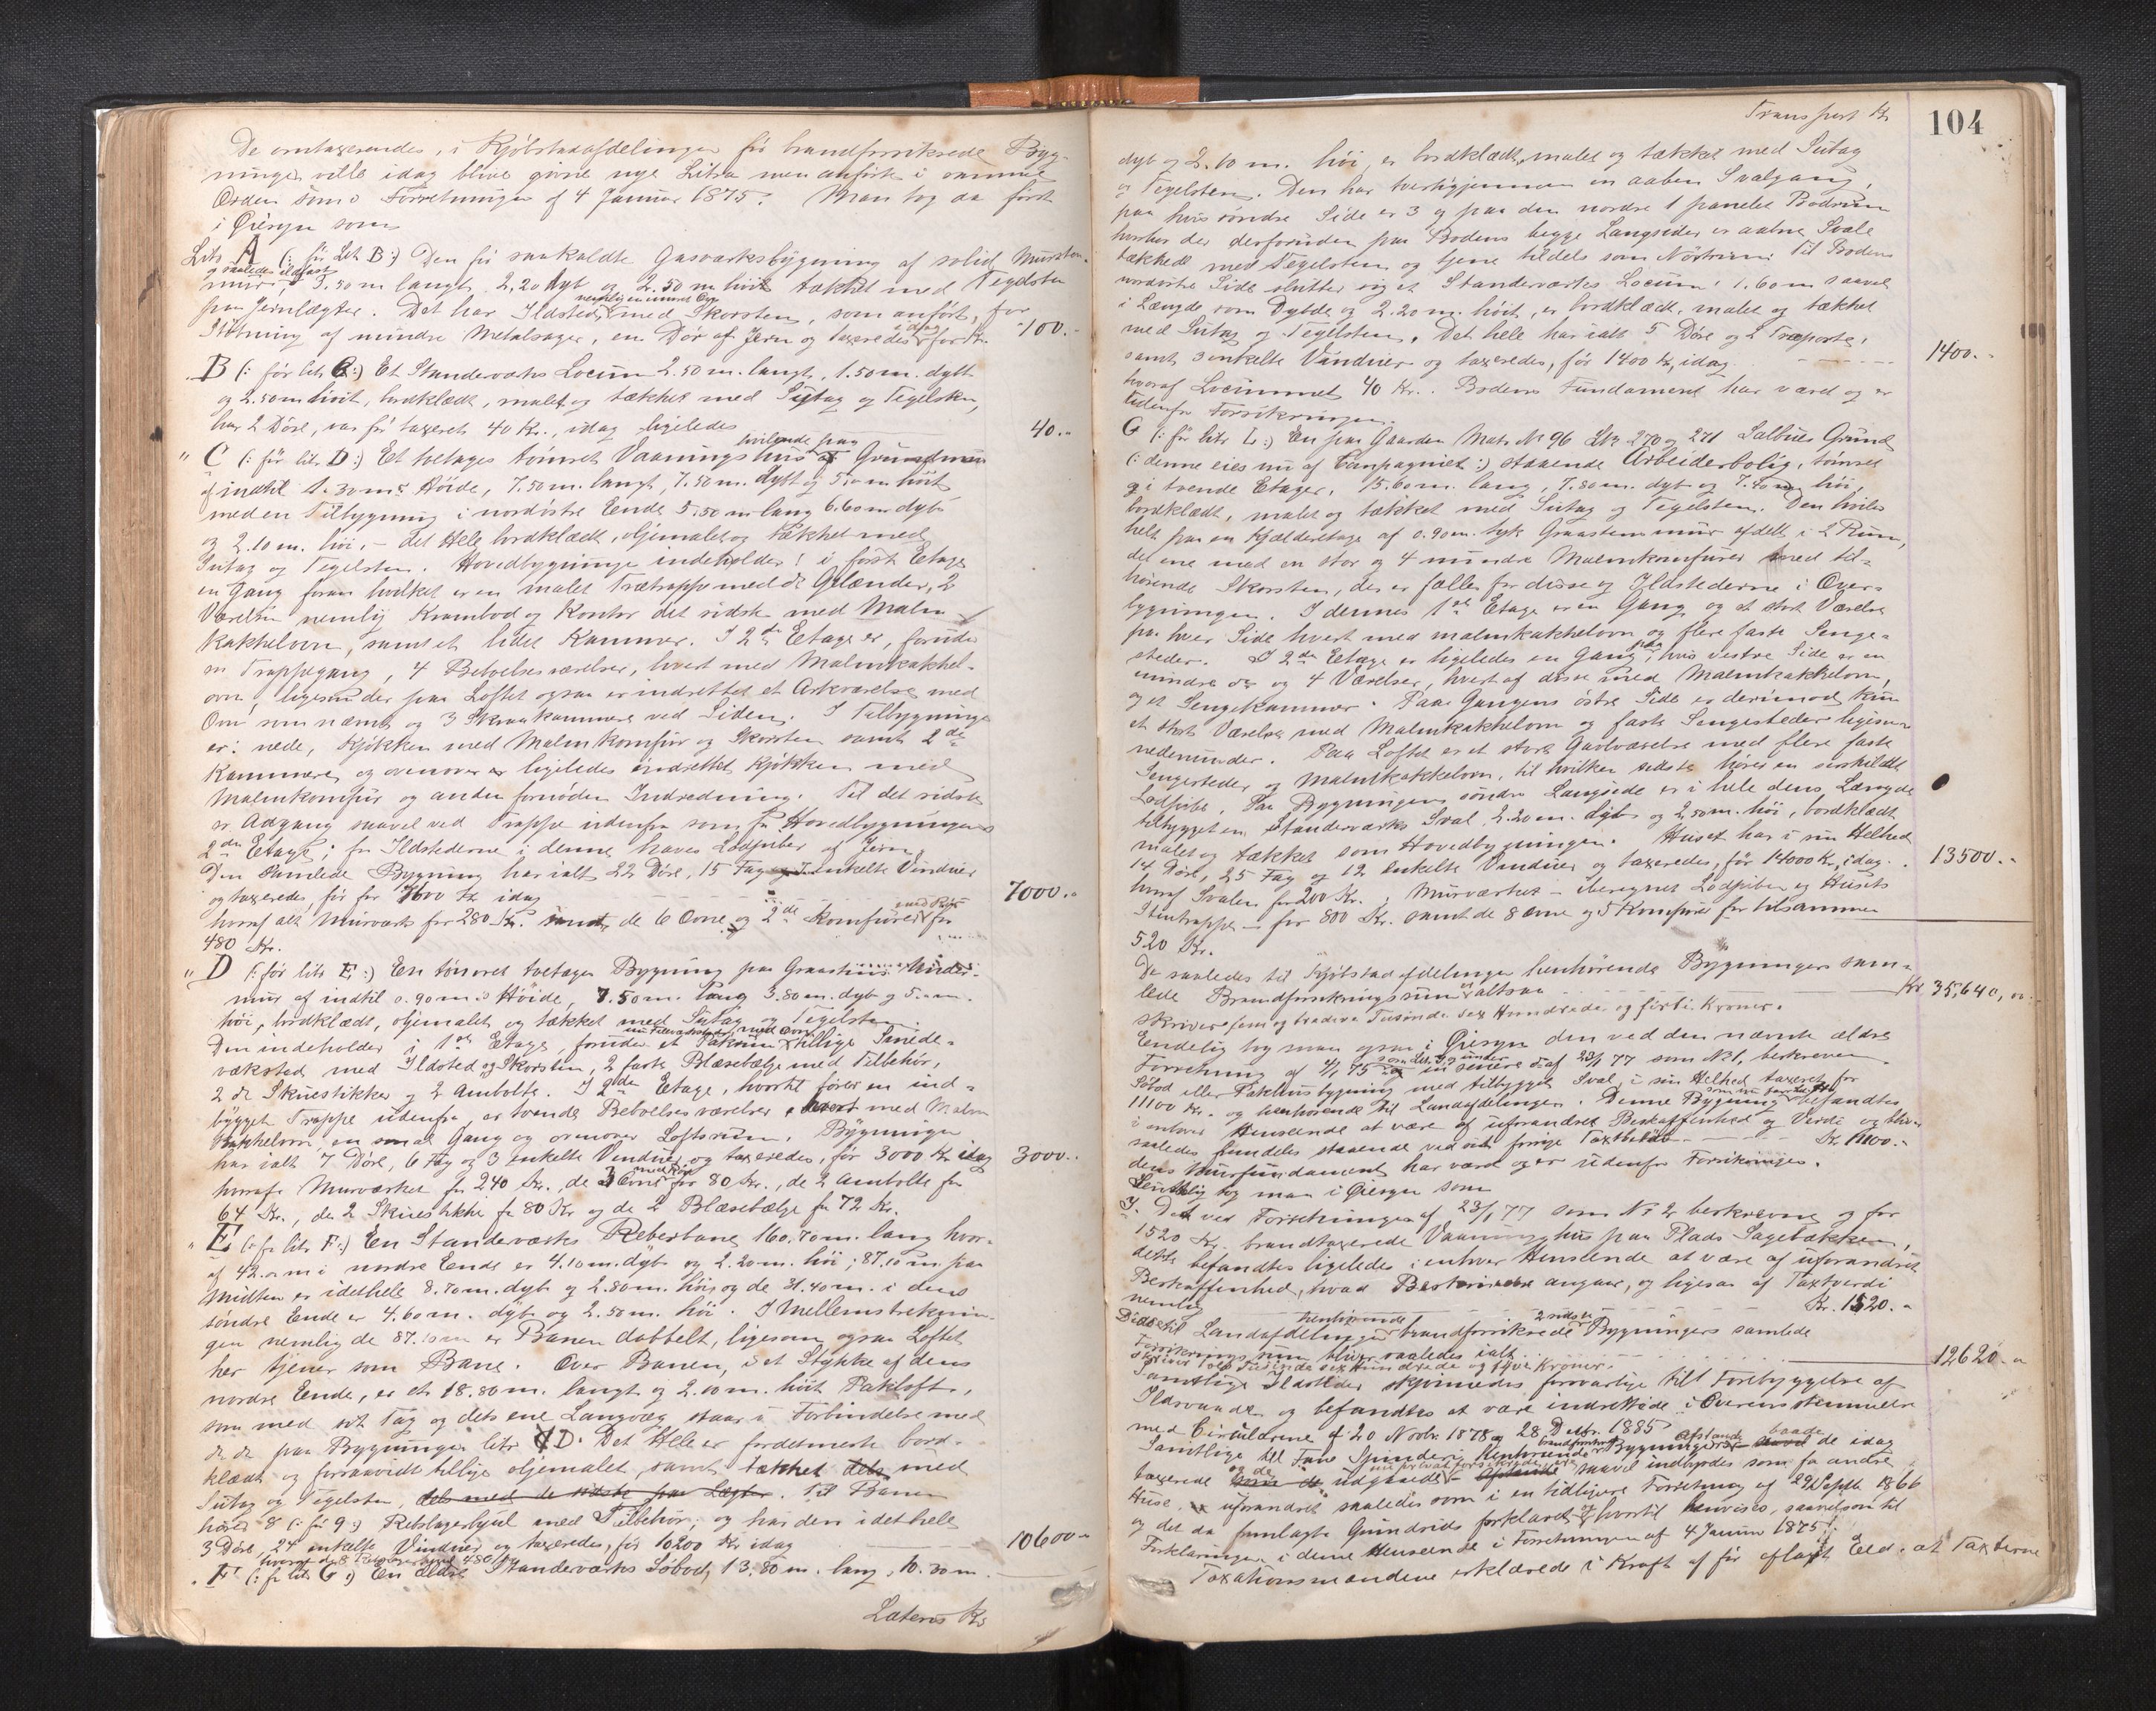 De omtaxerendes, i Kjøbstadafdelingen før brandforsikrede Byg-
ninger ville idag blive givne nye Litra men anførte i samme
Orden som i Forretningen af 4 Januar 1875. Man tog da først
i Øiesyn som
Litr A (: før Litr B :) Den før saakaldte Gasværksbygning af solid Mursten-
og saaledes ildfast
mur 3.50 m langt, 2,20 dyb og 2.50 m høit tækket med Teglsten
nemlig en muret Ovn
paa Jernlægter. Det har Ildsted, med Skorsten, som anført, for
idag
Støbning af mindre Metalsager, en Dør af Jern og taxeredes for Kr. 100.-
B (: før litr C :) Et Standerværks Locum 2.50 m. langt, 1.50 m. dybt
og 2.50 m høit, bordklædt, malet og tækket med Sutag og Teglsten,
har 2 Døre, var før taxeret 40 Kr., idag ligeledes 40.-
hvilende paa
" C (: før litr D :) Et toetages tømret Vaaningshus Grundmur
af indtil 1.30 m's Høide, 7.50 m. langt, 7.50 m. dybt og 5.0 m høit
med en Tilbygning i nordøstre Ende 5.50 m lang 6.60 m dyb
og 2.10 m. høi, - det Hele bordklædt, oljemalet og tækket med
Sutag og Tegelsten. Hovedbygninge indeholder: i første Etage
en Gang foran hvilket er en malet Trætrappe med Gelænder, 2
Værelser nemlig Krambod og Kontor det sidste med Malm
Kakkelovn, samt et lidet Kammer. I 2den Etage er, foruden
en Trappegang, 4 Beboelsesværelser, hvert med Malmkakkel-
ovn, ligesom der paa Loftet ogsaa er indrettet et Arkværelse med
Ovn som nævnt og 3 Skraakammere ved Siden. I Tilbygninge
er: nede, Kjøkken med Malmkomfur og Skorsten samt 2de
Kammere, og ovenover er ligeledes indrettet Kjøkken med
Malmkomfur og anden fornøden Indredning. Til det sidste
er Adgang saavel ved Trappe udenfra som fra Hovedbygningens
2den Etage; fra Ildstederne i denne haves Lodpiber af Jern.
Den samlede Bygning har ialt 22 Døre, 15 Fag enkelte Vinduer
og taxeredes, før for 7600 Kr idag 7000.-
med Rør
hvoraf alt Murværk for 280 Kr. samt de 6 Ovne og 2de Komfurer for
480 Kr.
" D (: før litr E :) En tømret toetages Bygning paa Graastens Under-
mur af indtil 0.90 m.s Høide, 7.50 m. lang 3.80 m. dyb og 5.0 m.
høi, bordklædt, oljemalet og tækket med Sutag og Tegelsten
med Ovn
Den indeholder i 1ste Etage, foruden et Pakrum tillige Smede-
værksted med Ildsted og Skorsten, 2 faste Blæsebælge med Tilbehør,
2 de Skruestikker og 2 Ambolte. I 2den Etage, hvortil fører en ind-
bygget Trappe udenfra, er tvende Beboelsesværelser, hvert med Malm
Kakkelovn, en smal Gang og ovenover Loftsrum. Bygningen
har ialt 7 Døre, 6 Fag og 3 enkelte Vinduer og taxeredes, før 3000 Kr idag 3000.-
med Rør
hvoraf Murværket for 240 Kr., de 3 Ovne for 80 Kr., de 2 Ambolte for
64 Kr., de 2 Skruestikke for 80 Kr og de 2 Blæsebælge for 72 Kr.
" E (: før litr F :) En Standerværks Reberbane 160.70 m. lang hvor-
af 42.0 m i nordre Ende er 4.10 m. dyb og 2.20 m. høi; 87.10 m. paa
Midten er idethele 8.70 m. dyb og 2.80 m. høi og de 31.40 m. i dens
søndre Ende er 4.60 m. dyb og 2.50 m. høi. I Mellemstræknin-
gen nemlig de 87.10 m er Banen dobbelt, ligesom ogsaa Loftet
her tjener som Bane. Over Banen, i et Stykke af dens
nordre Ende, er et 18.80 m. langt og 2.00 m. høit Pakloft,
som med sit Tag og dets ene Langvæg staar i Forbindelse med
de paa Bygningen litr D. Det Hele er fordetmeste bord-
klædt og forsaavidt tillige oljemalet, samt tækket dels med
Sutag og Tegelsten, dels med de sidste paa Lægter. Til Banen
hører 8 (: før 9 :) Rebslagerhjul med Tilbehør, og har den idethele
3 Døre, 24 enkelte Vinduer og taxeredes, før 10200 Kr idag 10600-
hvoraf de 8 480
" F (: før litr G :) En ældre Standerværks Søbod, 13.80 m. lang, 10.30 m.
Lateris Kr
Transport Kr
104
dyb og 2.10 m. høi, er bordklædt, malet og tækket med Sutag
og Tegelsten. Den har tvertigjennem en aaben Svalgang,
paa hvis søndre Side er 3 og paa den nordre 1 panelet Bodrum
hvorhos der desforuden paa Bodens begge Langsider er aabne Svale
tækkede med Tegelsten og tjene tildels som Nøstrum. Til Bodens
nordøstre Side slutter sig et Standerværks Locum 1.60 m saavel
i Længde som Dybde og 2.20 m. høit, er bordklædt, malet og tækket
med Sutag og Tegelsten. Det hele har ialt 5 Døre og 2 Træporte,
samt 3 enkelte Vinduer og taxeredes, før 1400 Kr, idag 1400.-
hvoraf Locummet 40 Kr. Bodens Fundament har været og er
udenfor Forsikringen.
G (: før litr L :) En paa Gaarden Matr. N 96 LNr 270 og 271 Salbues Grund
(: denne eies nu af Compagniet :) staaende Arbeiderbolig, tømret
og i tvende Etager, 15.60 m. lang, 7.80 m. dyb og 7.40 m høi,
bordklædt, malet og tækket med Sutag og Tegelsten. Den hviler
helt paa en Kjælderetage af 0.90 m. tyk Graastensmur afdelt i 2 Rum,
det ene med en stor og 4 mindre Malmkomfurer med til-
hørende Skorsten, der er fælles for disse og Ildstederne i Over-
bygningen. I dennes 1ste Etage er en Gang og et stort Værelse
paa hver Side hvert med malmkakkelovn og flere faste Senge-
steder. I 2den Etage er ligeledes en Gang, paa hvis vestre Side er en
mindre og 4 Værelser, hvert af disse med Malmkakkelovn,
og et Sengekammer. Paa Gangens østre Side er derimod kun
et stort Værelse med Malmkakkelovn og faste Sengesteder ligesom
nedenunder. Paa Loftet er et stort Gavlværelse med flere faste
Sengesteder og Malmkakkelovn, til hvilken sidste hører en særskildt
Lodpibe. Paa Bygningens søndre Langside er i hele dens Længde
tilbygget en Standerværks Sval 2.20 m. dyb og 2,50 m. høi, bordklædt
malet og tækket som Hovedbygningen. Huset har i sin Helhed
14 Døre, 25 Fag og 12 enkelte Vinduer og taxeredes, før 14000 Kr, idag 13500.-
hvoraf Svalen for 200 Kr., Murværket - iberegnet Lodpiben og Husets
Stentrappe - for 800 Kr. samt de 8 Ovne og 5 Komfurer for tilsammen
520 Kr.
De saaledes til Kjøbstadafdelingen henhørende Bygningers sam-
lede Brandforsikringssum er altsaa Kr 35,640,00
skriver fem og tredive Tusinde sex Hundrede og førti Kroner.
Endelig tog man ogsaa i Øiesyn den ved den nævnte ældre
Forretning af 4/1 75 og en senere af 23/1 77 som No 1, beskreven
Søbod eller Pakhusbygning med tilbygget Sval, i sin Helhed taxeret for
11100 Kr. og henhørende til Landafdelingen. Denne Bygning befandtes
i enhver Henseende at være af uforandret Beskaffenhed og Værdi og blev
saaledes fremdeles staaende ved sit forrige Taxtbeløb Kr. 11100.-
dens Murfundament har været og er udenfor Forsikringen.
Endelig tog man i Øiesyn som
I. Det ved Forretningen af 23/1 77 som No 2 beskrevne og for
1520 Kr. brandtaxerede Vaaninghus paa Plads Sagebækken,
dette befandtes ligeledes i enhver Henseende at være af uforandret
Beskaffenhed, hvad Beskrivelse angaar, og ligesaa af Taxtværdi
nemlig Kr. 1520.-
henhørende 2 sidste
Disse til Landafdelingen brandforsikrede Bygningers samlede
Forsikringssum bliver saaledes ialt 12620.-
skriver tolv Tusinde sex Hundrede og tyve Kroner.
Samtlige Ildsteder skjønnedes forsvarlige till Forebyggelse af
Ildsvaade og befandtes at være indrettede i Overensstemmelse
med Circulærne af 20 Novbr. 1878 og 28 Decbr. 1885
Afstande baade
Samtlige til Fane Spinderi henhørende Bygningers de idag
og de
taxerede udgaaede saavel indbyrdes som fra andre
Huse, uforandret saaledes som i en tidligere Forretning af 29 Septbr 1866
og det da fremlagte Grundrids forklaret og hvortil henvises, saavelsom til
Forklaringen i denne Henseende i Forretningen af 4 Januar 1875.
Taxationsmændene erklærede i Kraft af før aflagt Eed, at Taxterne